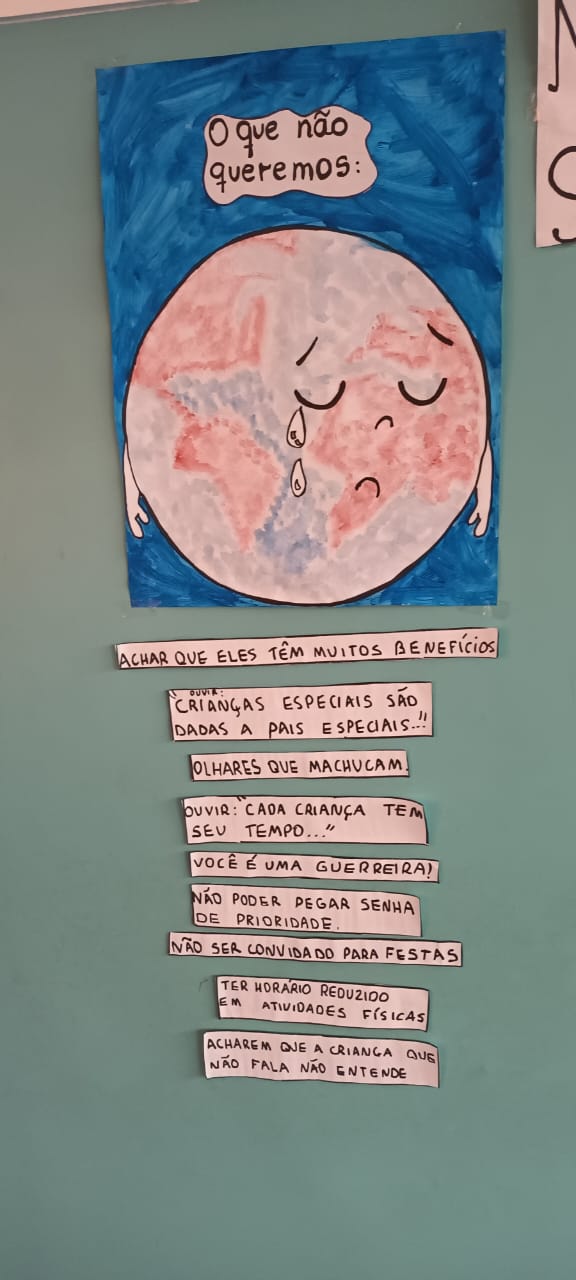 O que não
queremos:
ACHAR QUE ELES TÊM MUITOS BENEFÍCIOS
OUVIR:
"CRIANÇAS ESPECIAIS SÃO
DADAS A PAIS ESPECIAIS..."
OLHARES QUE MACHUCAM.
OUVIR: "CADA CRIANÇA TEM
SEU TEMPO..."
VOCÊ É UMA GUERREIRA!
NÃO PODER PEGAR SENHA
DE PRIORIDADE.
NÃO SER CONVIDADO PARA FESTAS
TER HORÁRIO REDUZIDO
EM ATIVIDADES FÍSICAS
ACHAREM QUE A CRIANÇA QUE
NÃO FALA NÃO ENTENDE